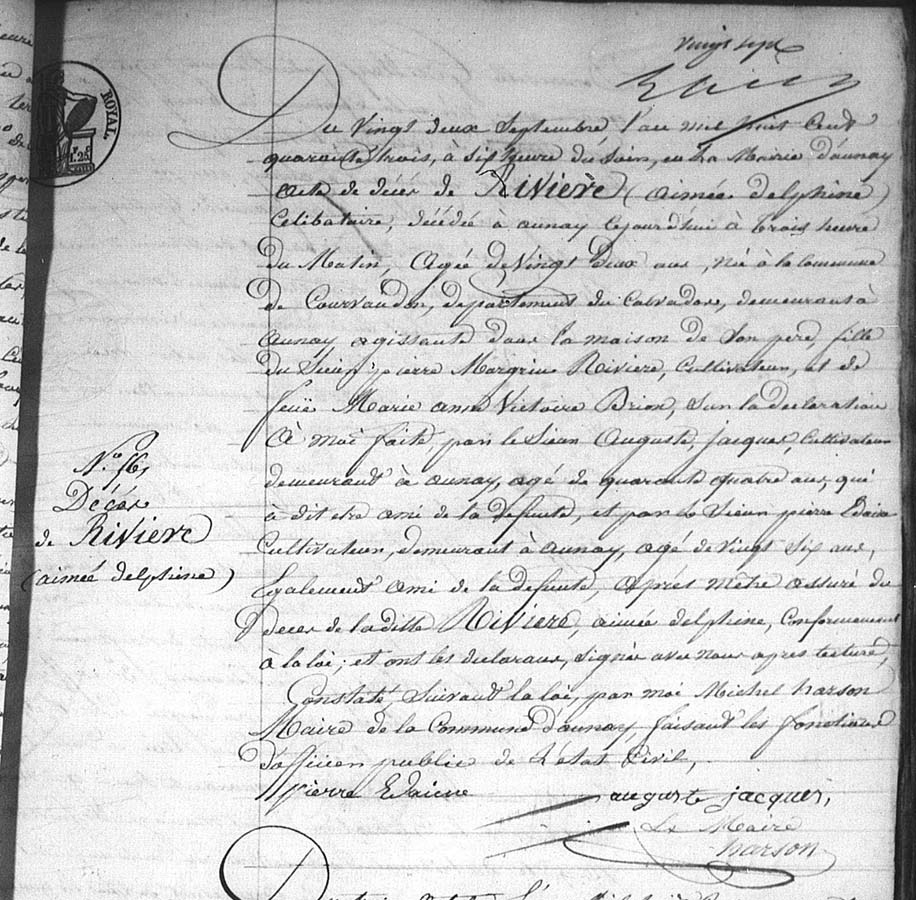 vingt sept
ROYAL.
Du vingt deux Septembre l'an mil huit Cent
quarante trois, à six heure du Soir, en La Mairie d'aunay
acte de décés de RiViere (aimée delphine)
Célibataire, décédée à aunay Cejourd'hui à trois heure
du Matin, Agée de Vingt deux ans, née à la commune
de Courvaudon, departement du Calvados, demeurant à
aunay agissante dans la maison de Son père, fille
du Sieur pierre Margrin Riviere, Cultivateur, et de
feuë Marie anne Victoire Brion, Sur la declaration
à moi faite, par le Sieur Auguste, jacques, Cultivateur
demeurant à aunay, agé de quarante quatre ans, qui
à dit etre ami de la defunte, et par le Sieur pierre
Cultivateur, demeurant à aunay, agé de vingt six ans,
Egalement ami de la defunte, Après m'être assuré du
deces de la ditte Riviere, aimée delphine, Conformement
à la loi; et ont les declarans, Signés avec nous apres lecture,
Constaté, Suivant la loi, par moi Michel harson
Maire de la Commune d'aunay, faisant les fonctions
d'officier public de L'état Civil,
pierre
auguste jacques,
Le Maire
harson
Décés
de RiViere
(aimée delphine)